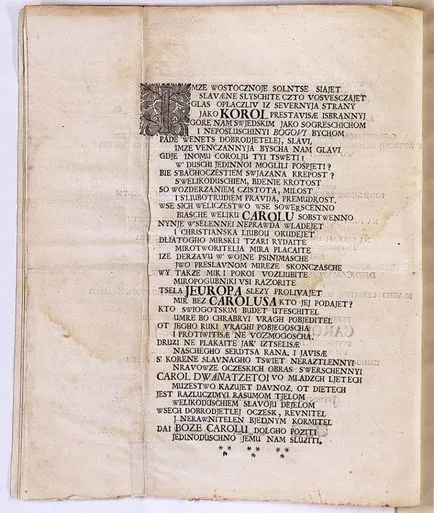 IMZE WOSTOCZNOJE SOLNTSE SIAJET
SLAVÆNE SLYSCHITE CZTO VOSVESCZAJET
GLAS OPLACZLIV IZ SEVERNYJA STRANY
JAKO KOROL PRESTAVISÆ ISBRANNYJ
GORE NAM SWJEDSKIM JAKO SOGRESCHICHOM
I NEPOSLUSCHINYI BOGOVI BYCHOM
PADE WENETS DOBRODJETELEJ, SLAVI,
IMZE VENCZANNYJA BYSCHA NAM GLAVI
GDJE INOMU COROLJU TYI TSWETI?
W DUSCHI JEDINNOI MOGLILI POSPJETI?
BIE S'BAGHOCZESTIEM SWJAZANA KREPOST?
S'WELIKODUSCHIEM, BDENIE KROTOST
SO WOZDERZANIEM CZISTOTA, MILOST
I S'LIUBOTRUDIEM PRAVDA, PREMUDROST,
WSE SICH WELICZESTWO WSE SOWERSCENNO
BIASCHE WELIKU CAROLU SOBSTWENNO
NYNJE W'SELENNEI NEPRAWDA WLADEJET
I CHRISTIANSKA LIUBOU OKUDEJET
DLIATOGHO MIRSKLI TZARI RYDAITE
MIROTWORITELJA MIRA PLACAITE
IZE DERZAVU W WOJNE PSINIMASCHE
JWO PRESLAVNOM MIREZE SKONCZASCHE
WY TAKZE MIR I POKOI VOZLIUBITE
MIROPOGUBNIKI VSI RAZORITE
TSELA JEUROPA SLEZY PROLIVAJET
MIR BEZ CAROLUSA KTO JEJ PODAJET?
KTO SWIOGOTSKIM BUDET UTESCHITEL
UMRE BO CHRABRYI VRAGHI POBJEDITEL
OT JEGHO RUKI VRAGHI POBJEGOSCHA
I PROTIWITISÆ NE VOZMOGOSCHA.
DRUZI NE PLAKAITE JAK' IZTSELISÆ
NASCHEGHO SERDTSA RANA, I JAVISÆ
S' KORENE SLAVNAGHO TSWIET NERAZTLENNYI
NRAVOWZE OCZESKICH OBRAS S'WERSCHENNYI
CAROL DWANATZETOI VO MLADZCH LJETECH
MUZESTWO KAZUJET DAVNOZ, OT DIETECH
JEST RAZLUCZIMYI RASUMOM TJELOM
WELIKODUSCHIEM SLAVOJU DEJELOM
WSECH DOBRODJETLEJ OCZESK, REVNITEL
J NERAWNITELEN BJEDNYM KORMITEL
DAI BOZE CAROLU DOLGHO POZITI
JEDINODUSCHNO JEMU NAM SLUZITI,